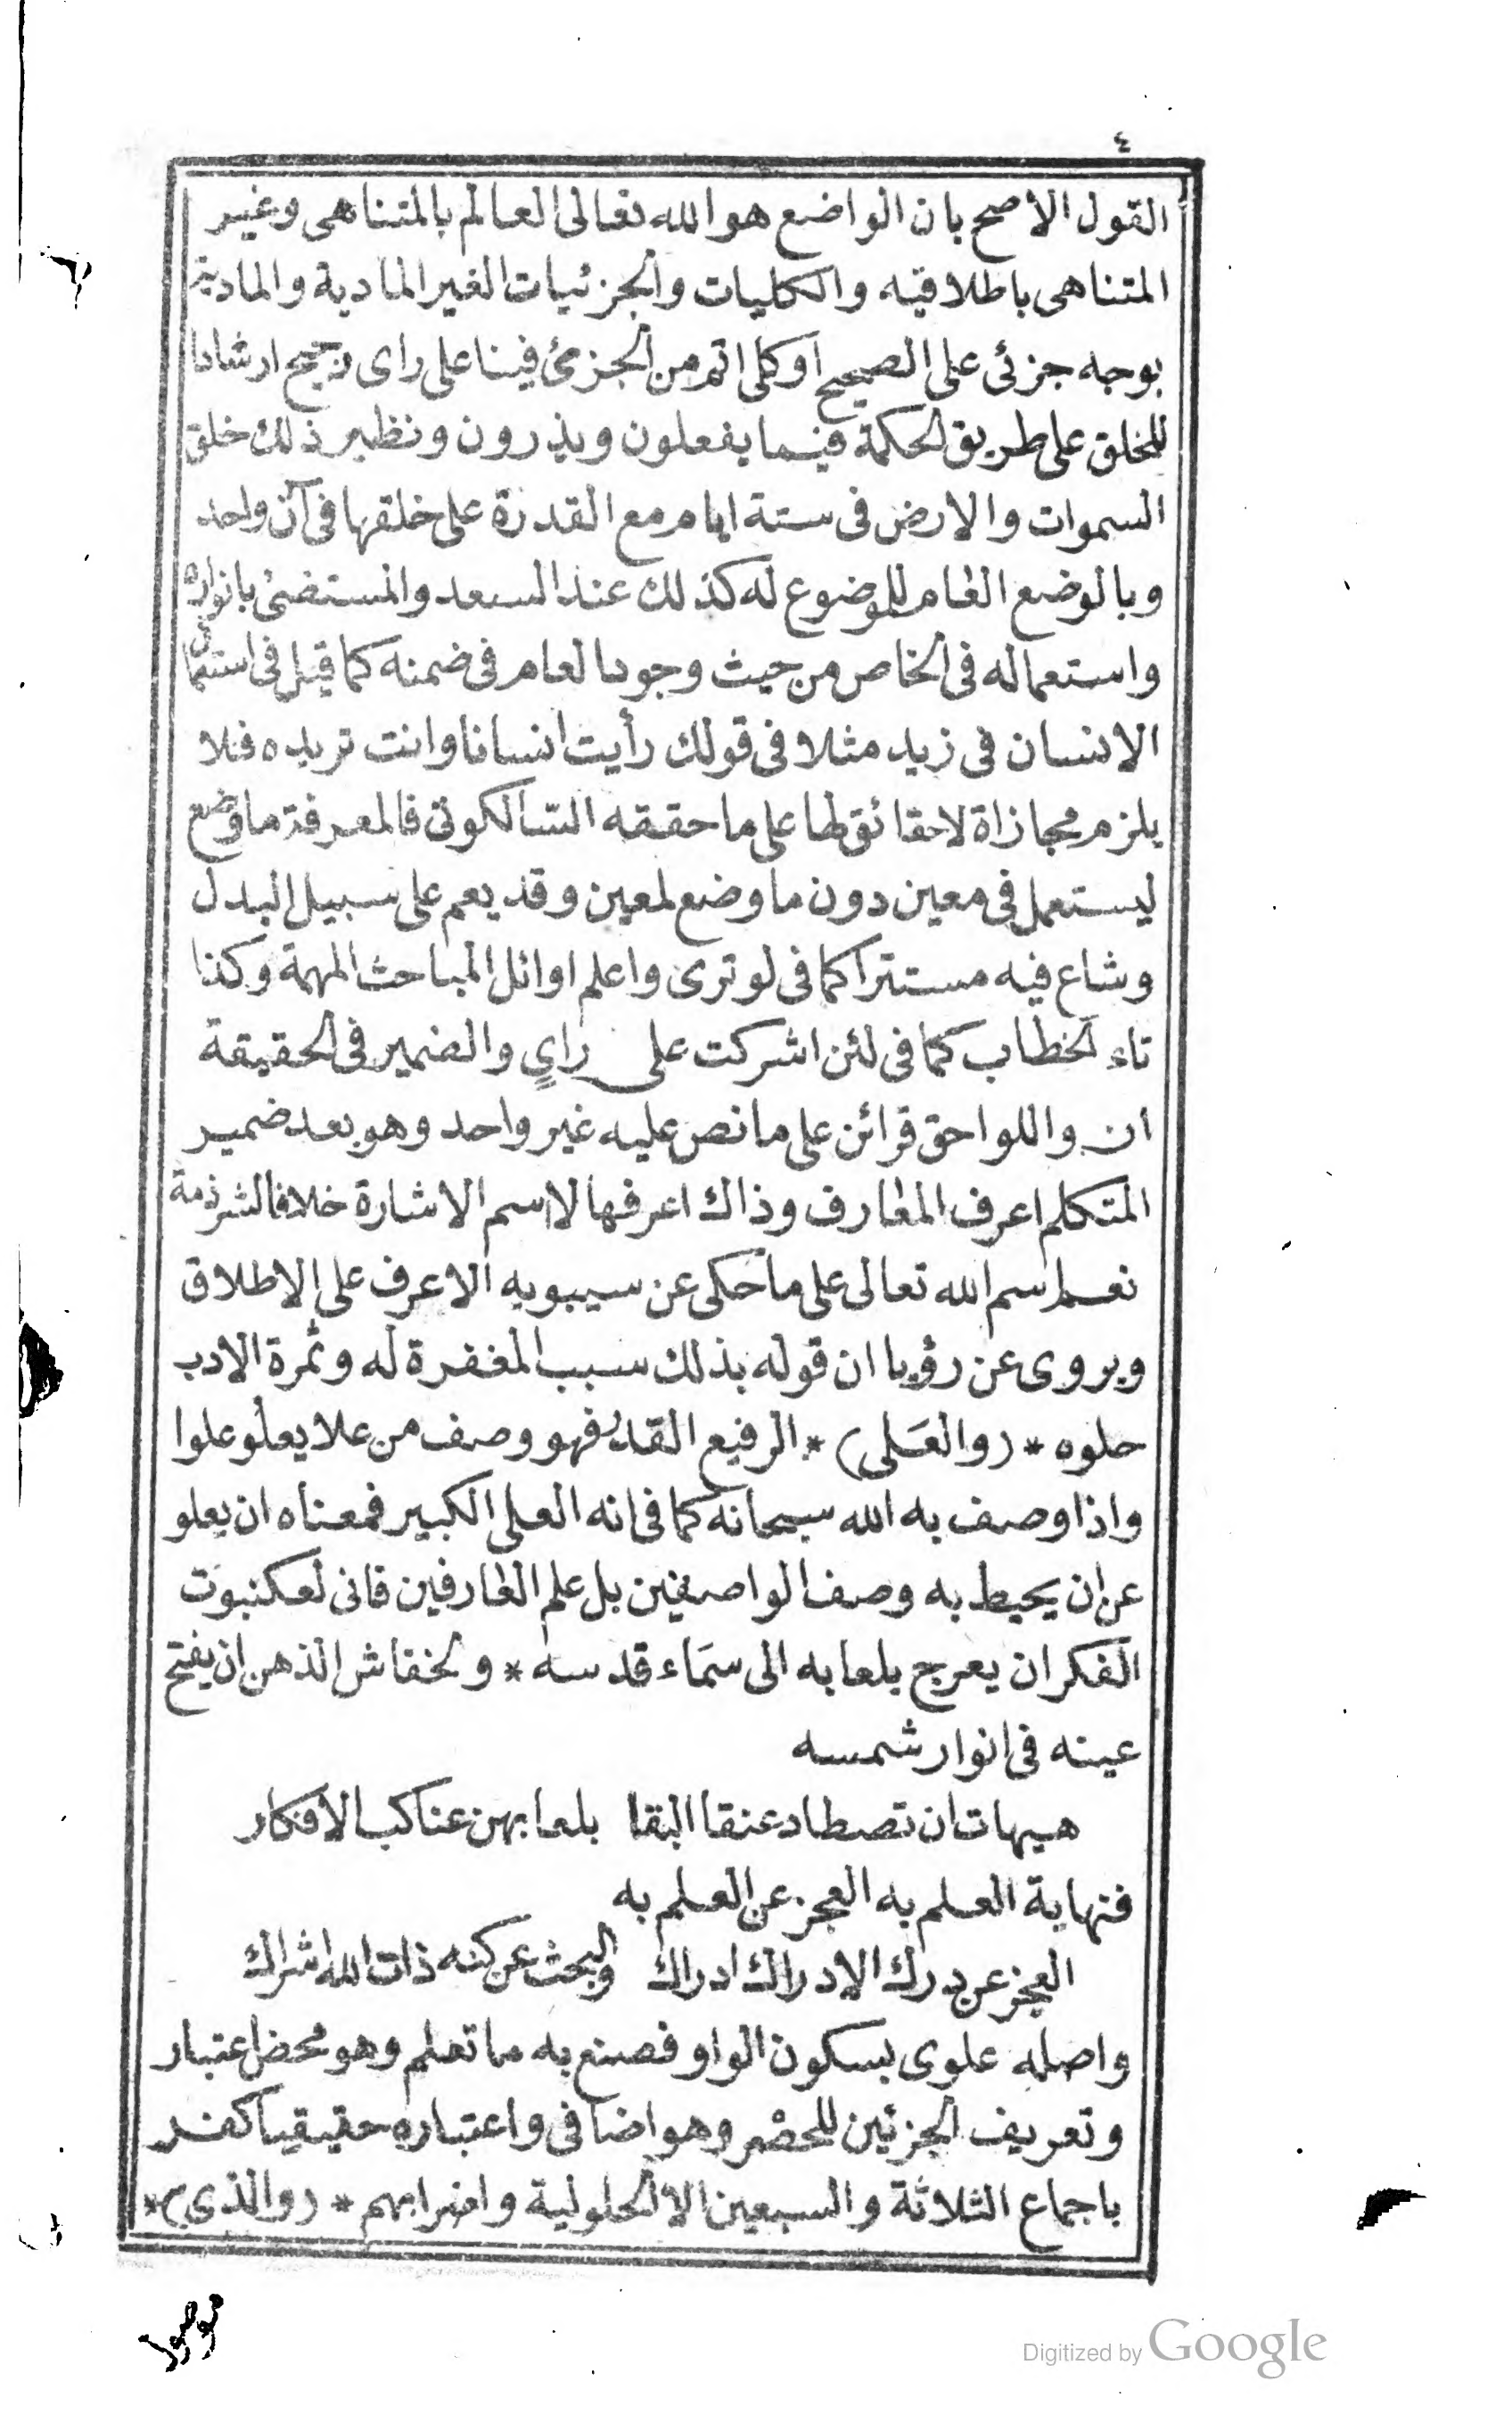 ٤
القول الاصح بان الواضع هو الله تعالى العالم بالمتناهى وغير
المتناهى باطلاقيه والكليات والجزئيات الغير المادية والمادية
بوجه جزئى على الصحيح او كلى اتم من الجزئى فينا على راى رجيح ارشادا
للخلق على طريق الحكمة فيما يفعلون ويذرون ونظير ذلك خلق
السموات والارض فى ستة ايام مع القدرة على خلقها فى آن واحد
وبالوضع العام للموضوع له كذلك عند السعد والمستضئ بانواره
واستعماله فى الخاص من حيث وجود العام فى ضمنه كما قيل فى استعمال
الانسان فى زيد مثلا فى قولك رأيت انسانا وانت تريده فلا
يلزم مجازاة لاحقائق لها على ما حققه السالكوتى فالمعرفة ما وضع
ليستعمل فى معين دون ما وضع لمعين وقد يعم على سبيل البدل
وشاع فيه مستترا كما فى لو ترى واعلم اوائل المباحث المهمة وكذا
تاء الخطاب كما فى لئن اشركت على راىٍ والضمير فى الحقيقة
ان واللواحق قرائن على ما نص عليه غير واحد وهو بعد ضمير
المتكلم اعرف المعارف وذاك اعرفها لا اسم الاشارة خلافا لشرذمة
نعم اسم الله تعالى على ما حكى عن سيبويه الاعرف على الاطلاق
ويروى عن رؤيا ان قوله بذلك سبب المغفرة له وثمرة الادب
حلوه * (والعَلى) * الرفيع القدر فهو وصف من علا يعلو علوا
واذا وصف به الله سبحانه كما فى انه العلى الكبير فمعناه ان يعلو
عن ان يحيط به وصف الواصفين بل علم العارفين فانى لعكنبوت
الفكر ان يعرج بلعابه الى سَمَاء قدسه * ولخفاش الذهن ان يفتح
عينه فى انوار شمسه
هيهات ان تصطاد عنقا البقا بلعابهن عناكب الافكار
فنهاية العلم به العجز عن العلم به
العجز عن درك الادراك ادراك والبحث عن كنه ذات الله اشراك
واصله علوى بسكون الواو فصنع به ما تعلم وهو محض اعتبار
وتعريف الجزئين للحصر وهو اضافى واعتباره حقيقيا كفر
باجماع الثلاثة والسبعين الا الحلولية واضرابهم * (والذى) *
Digitized by Google